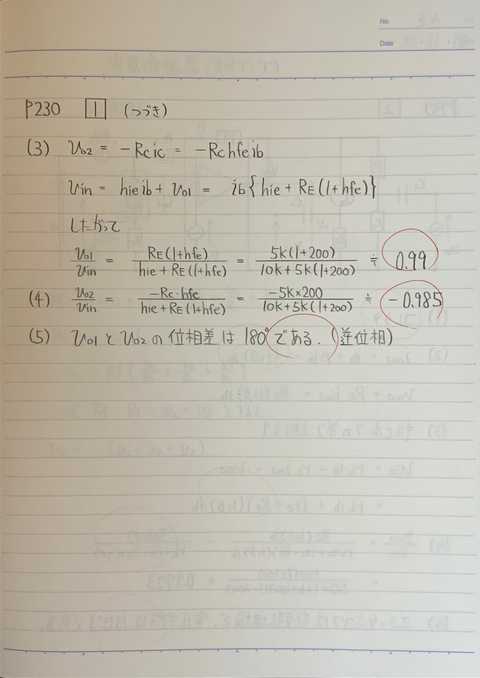 No.
Date
P230 1 (つづき)
(3) Vo2 = -Rc ic = -Rc hfe ib
Vin = hie ib + Vo1 = ib{hie + RE(1+hfe)}
したがって
Vo1/Vin = RE(1+hfe)/(hie + RE(1+hfe)) = 5k(1+200)/(10k+5k(1+200)) ≒ 0.99
(4) Vo2/Vin = -Rc・hfe/(hie + RE(1+hfe)) = -5k×200/(10k+5k(1+200)) ≒ -0.985
(5) Vo1とVo2の位相差は180°である.(逆位相)